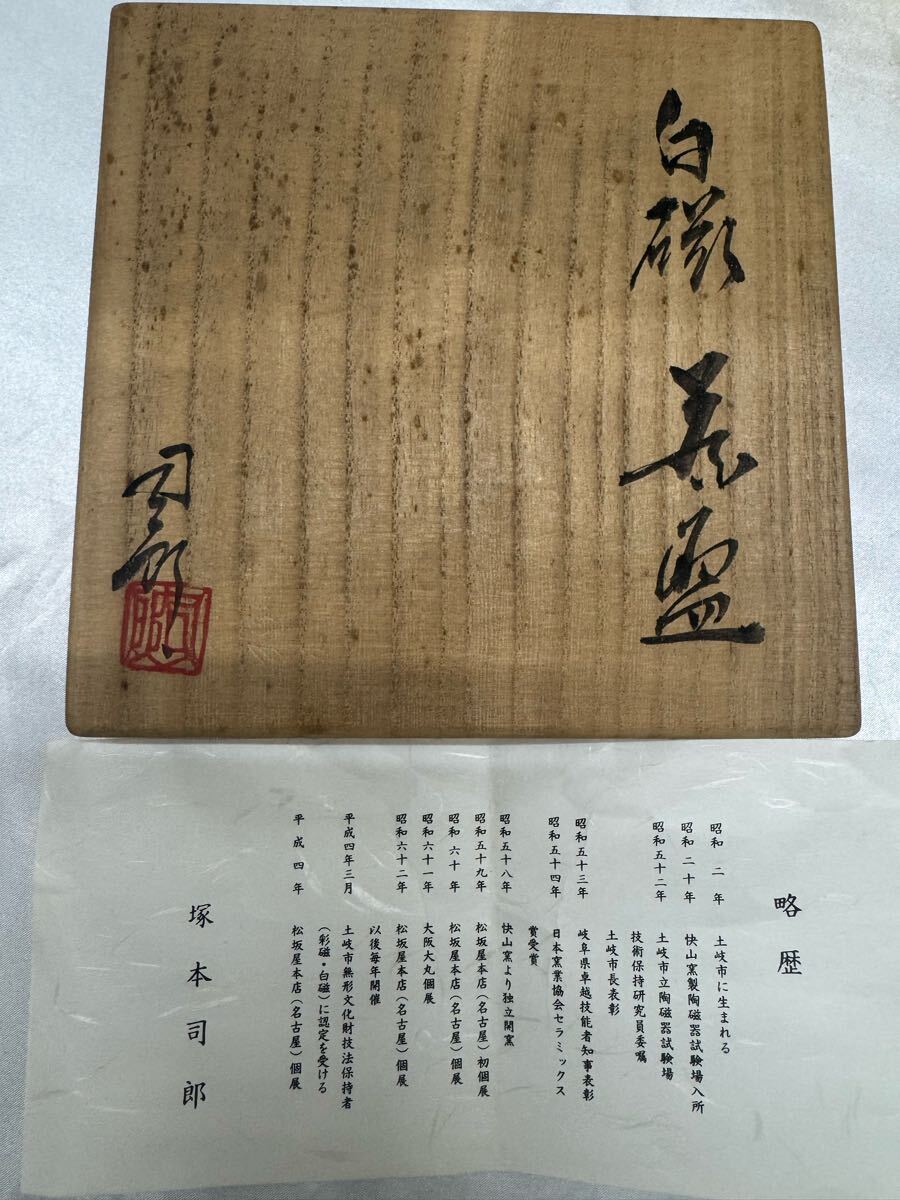 白磁 茶盌
司郎
略歴
昭和二年 土岐市に生まれる
昭和二十年 快山窯製陶磁器試験場入所
昭和五十二年 土岐市立陶磁器試験場
技術保持研究員委嘱
土岐市長表彰
昭和五十三年 岐阜県卓越技能者知事表彰
昭和五十四年 日本窯業協会セラミックス
賞受賞
昭和五十八年 快山窯より独立開窯
昭和五十九年 松坂屋本店(名古屋)初個展
昭和六十年 松坂屋本店(名古屋)個展
昭和六十一年 大阪大丸個展
昭和六十二年 松坂屋本店(名古屋)個展
以後毎年開催
平成四年三月 土岐市無形文化財技法保持者
(彩磁・白磁)に認定を受ける
平成四年 松坂屋本店(名古屋)個展
塚本司郎